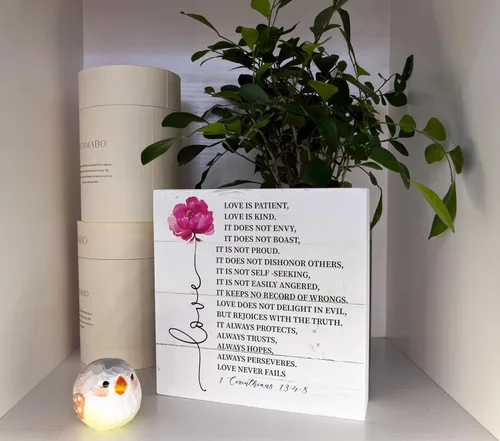 AMABO
LOVE IS PATIENT,
LOVE IS KIND.
IT DOES NOT ENVY,
IT DOES NOT BOAST,
IT IS NOT PROUD.
IT DOES NOT DISHONOR OTHERS,
IT IS NOT SELF -SEEKING,
IT IS NOT EASILY ANGERED,
IT KEEPS NO RECORD OF WRONGS.
LOVE DOES NOT DELIGHT IN EVIL,
BUT REJOICES WITH THE TRUTH.
IT ALWAYS PROTECTS,
ALWAYS TRUSTS,
ALWAYS HOPES,
ALWAYS PERSEVERES.
LOVE NEVER FAILS
1 Corinthians 13:4-8
love